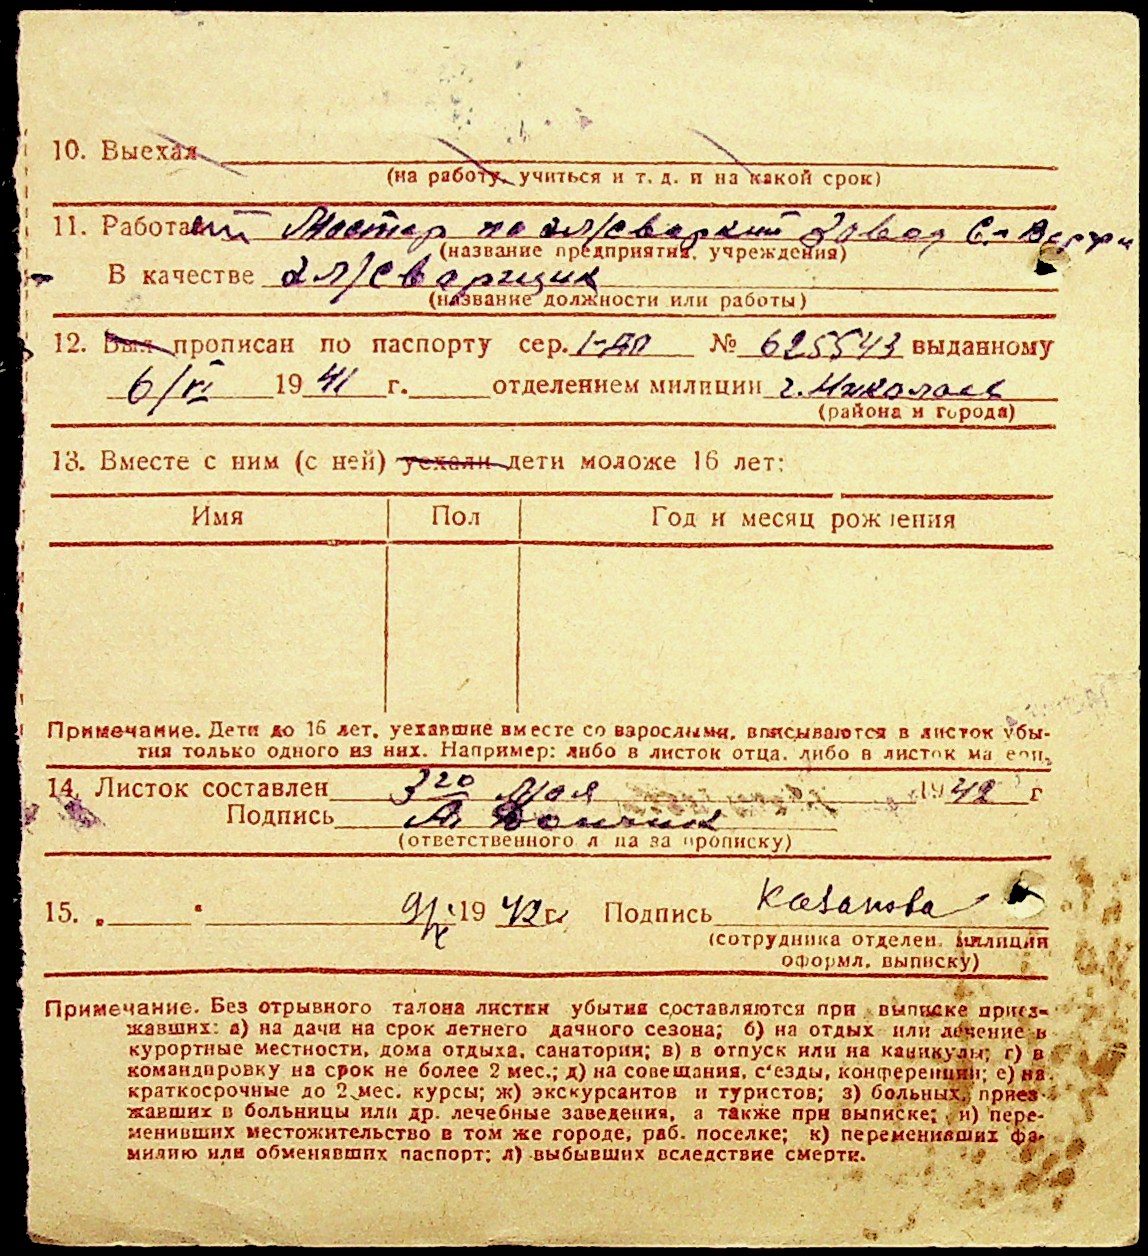 10. Выехал
(на работу, учиться и т. д. и на какой срок)
11. Мастер по эл/сварки завод С.-Верфи
(название предприятия, учреждения)
В качестве эл/сварщик
(название должности или работы)
12. Был прописан по паспорту сер. № 625543 выданному
6/VI 1941 г. отделением милиции г. Николаев
(района и города)
13. Вместе с ним (с ней) уехали дети моложе 16 лет:
Имя Пол Год и месяц рождения
Примечание. Дети до 16 лет, уехавшие вместе со взрослыми, вписываются в листок убы-
тия только одного из них. Например: либо в листок отца, либо в листок матери.
14. Листок составлен 3го мая 1942 г
Подпись
(ответственного лица за прописку)
15. „ " 9/X 1942 г. Подпись Казакова
(сотрудника отделен. милиции
оформл. выписку)
Примечание. Без отрывного талона листки убытия составляются при выписке приез-
жавших: а) на дачи на срок летнего дачного сезона; б) на отдых или лечение в
курортные местности, дома отдыха, санатории; в) в отпуск или на каникулы; г) в
командировку на срок не более 2 мес.; д) на совещания, съезды, конференции; е) на
краткосрочные до 2 мес. курсы; ж) экскурсантов и туристов; з) больных, приез-
жавших в больницы или др. лечебные заведения, а также при выписке; и) пере-
менивших местожительство в том же городе, раб. поселке; к) переменивших фа-
милию или обменявших паспорт; л) выбывших вследствие смерти.